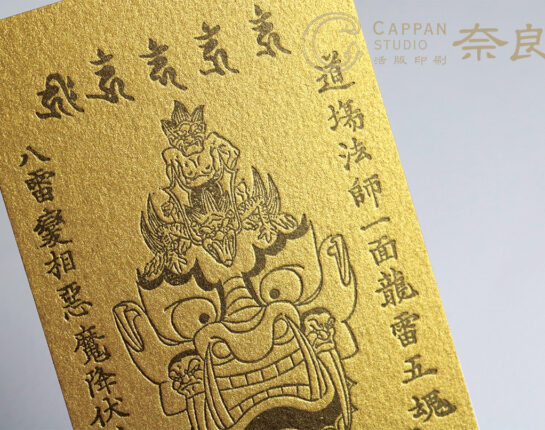 CAPPAN
STUDIO
活版印刷
奈良
道場法師一面龍雷五塊
八雷變相惡魔降伏